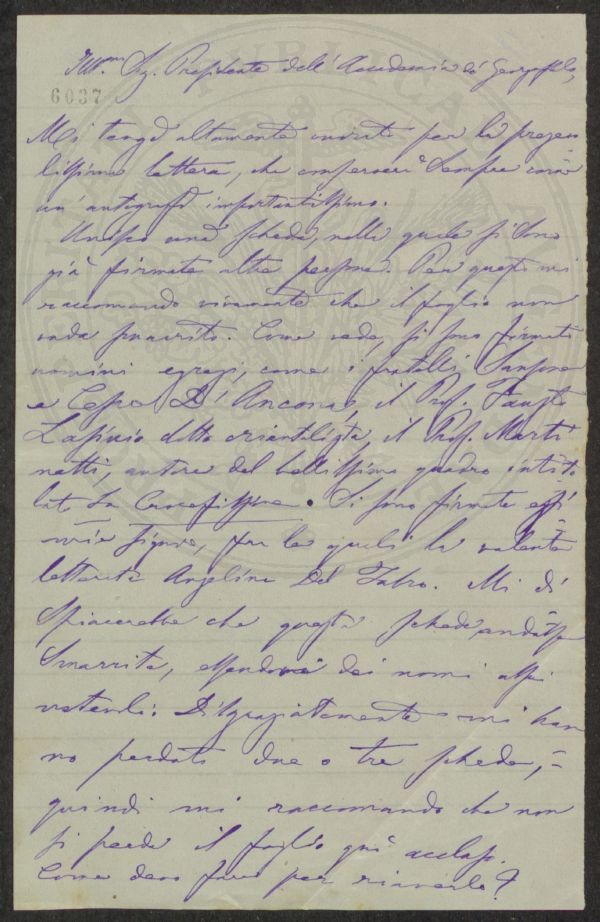 Ill.mo Sig. Presidente dell'Accademia dei Georgofili,
6037
Mi tengo altamente onorato per la pregia
tissima lettera, che conserverò sempre come
un autografo importantissimo.
Unisco una scheda, nella quale si sono
già firmate altre persone. Per questo mi
raccomando vivamente che il foglio non
vada smarrito. Come vede, si sono firmati
uomini egregi, come i fratelli Sansone
e Cesare D'Ancona, il Prof. Fausto
Lasinio dotto orientalista, il Prof. Marti
netti, autore del bellissimo quadro intito
lato La Crocefissione. Si sono firmate
signore, fra le quali la valente
letterata Angelina Del Fabro. Mi di
spiacerebbe che questa scheda andasse
smarrita, essendovi dei nomi assai
notevoli. Disgraziatamente mi han
no perduto due o tre schede,
quindi mi raccomando che non
si perda il foglio qui accluso.
Come devo fare per riaverlo?